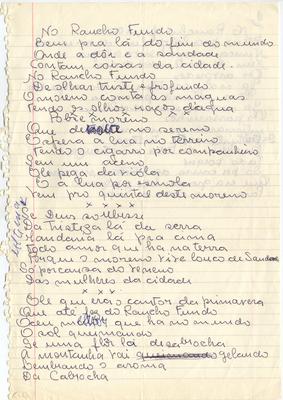 No Rancho Fundo
Bem pra lá do fim do mundo
Onde a dôr e a saudade
Contam coisas da cidade.
No Rancho Fundo
De olhar triste e profundo
O moreno conta as maguas
Tendo os olhos rasos dagua
Pobre moreno
Que de noite no sereno
Espera a lua no terreiro
Tendo o cigarro por companheiro
Sem um aceno
Ele pega da viola
E a lua por esmola
Vem pro quintal deste moreno
x x x
Se Deus soubesse
Da tristeza lá da serra
Mandaria lá pra cima
Todo amor que ha na terra
Porque o moreno vive louco de Saudade
Só por causa do veneno
Das mulheres da cidade
x x x
Ele que era o cantor da primavera
Que até fez do Rancho Fundo
O céu melhor que ha no mundo
O sol queimando
Se uma flor lá desabrocha
A montanha vai gelando
Lembrando o aroma
Da Cabrocha